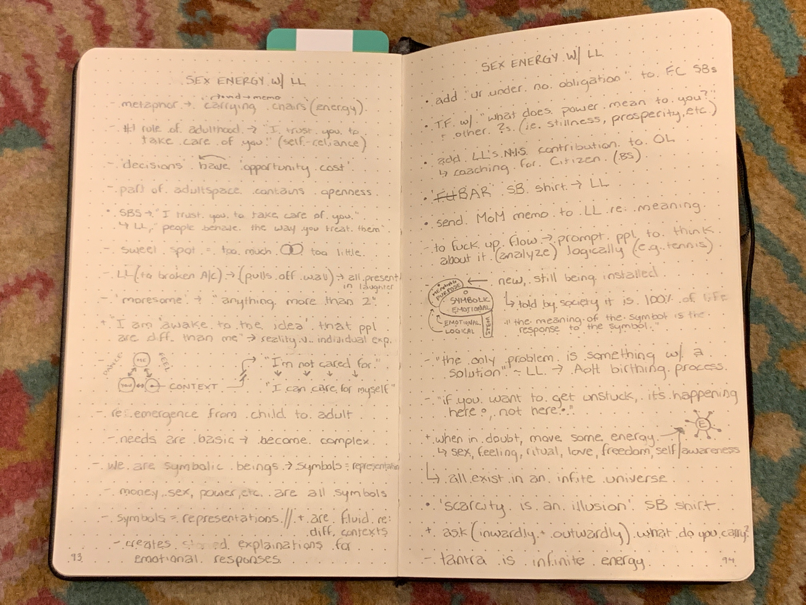 SEX ENERGY W/ LL
- metaphor → carrying chairs (energy).
- #1 role of adulthood → "I trust you to
take care of you." (self-reliance)
- 'decisions' have 'opportunity cost'.
- part of adultspace contains openness.
SBS → "I trust you to take care of you."
↳ LL, "people behave the way you treat them"
- sweet spot = too much too little.
- LL (to broken A/C) → (pulls off wall) → all present
in laughter
- 'moresome' → "anything more than 2"
+ "I am 'awake to the idea' that ppl
are diff. than me" → reality v. individual exp.
ME
CONTEXT
"I'm not cared for."
"I can care for myself"
- re-emergence from child to adult
- needs are basic → become complex.
- we are symbolic beings → symbols = representation
- money, sex, power, etc. are all symbols
- symbols = representations // + are fluid re:
diff. contexts
- creates explainations for
emotional responses.
93
SEX ENERGY W/ LL
• add 'ur under no obligation' to FC SBs
• T.F. w/ "what does power mean to you?"
other ?s. (ie. stillness, prosperity, etc.)
• add LL's N.I.S. contribution to OL
↳ coaching for Citizen (BS)
• 'FUBAR' SB shirt → LL
• send MoM memo to LL re: meaning.
- to fuck up flow → prompt ppl to think
about it (analyze) logically (e.g. tennis)
← new, still being installed
MEANING
PURPOSE
SYMBOLIC
EMOTIONAL
EMOTIONAL
LOGICAL
↳ told by society it is 100% of life
"the meaning of the symbol is the
response to the symbol."
- "the only problem is something w/ a
solution" ~ LL → birthing process.
- "if you want to get unstuck, it's happening
here, not here"
E
+ when in doubt, move some energy
↳ sex, feeling, ritual, love, freedom, self/awareness
↳ all exist in an infite universe
• 'scarcity is an illusion' SB shirt.
+ ask (inwardly + outwardly) what do you carry?
- tantra is infinite energy.
94